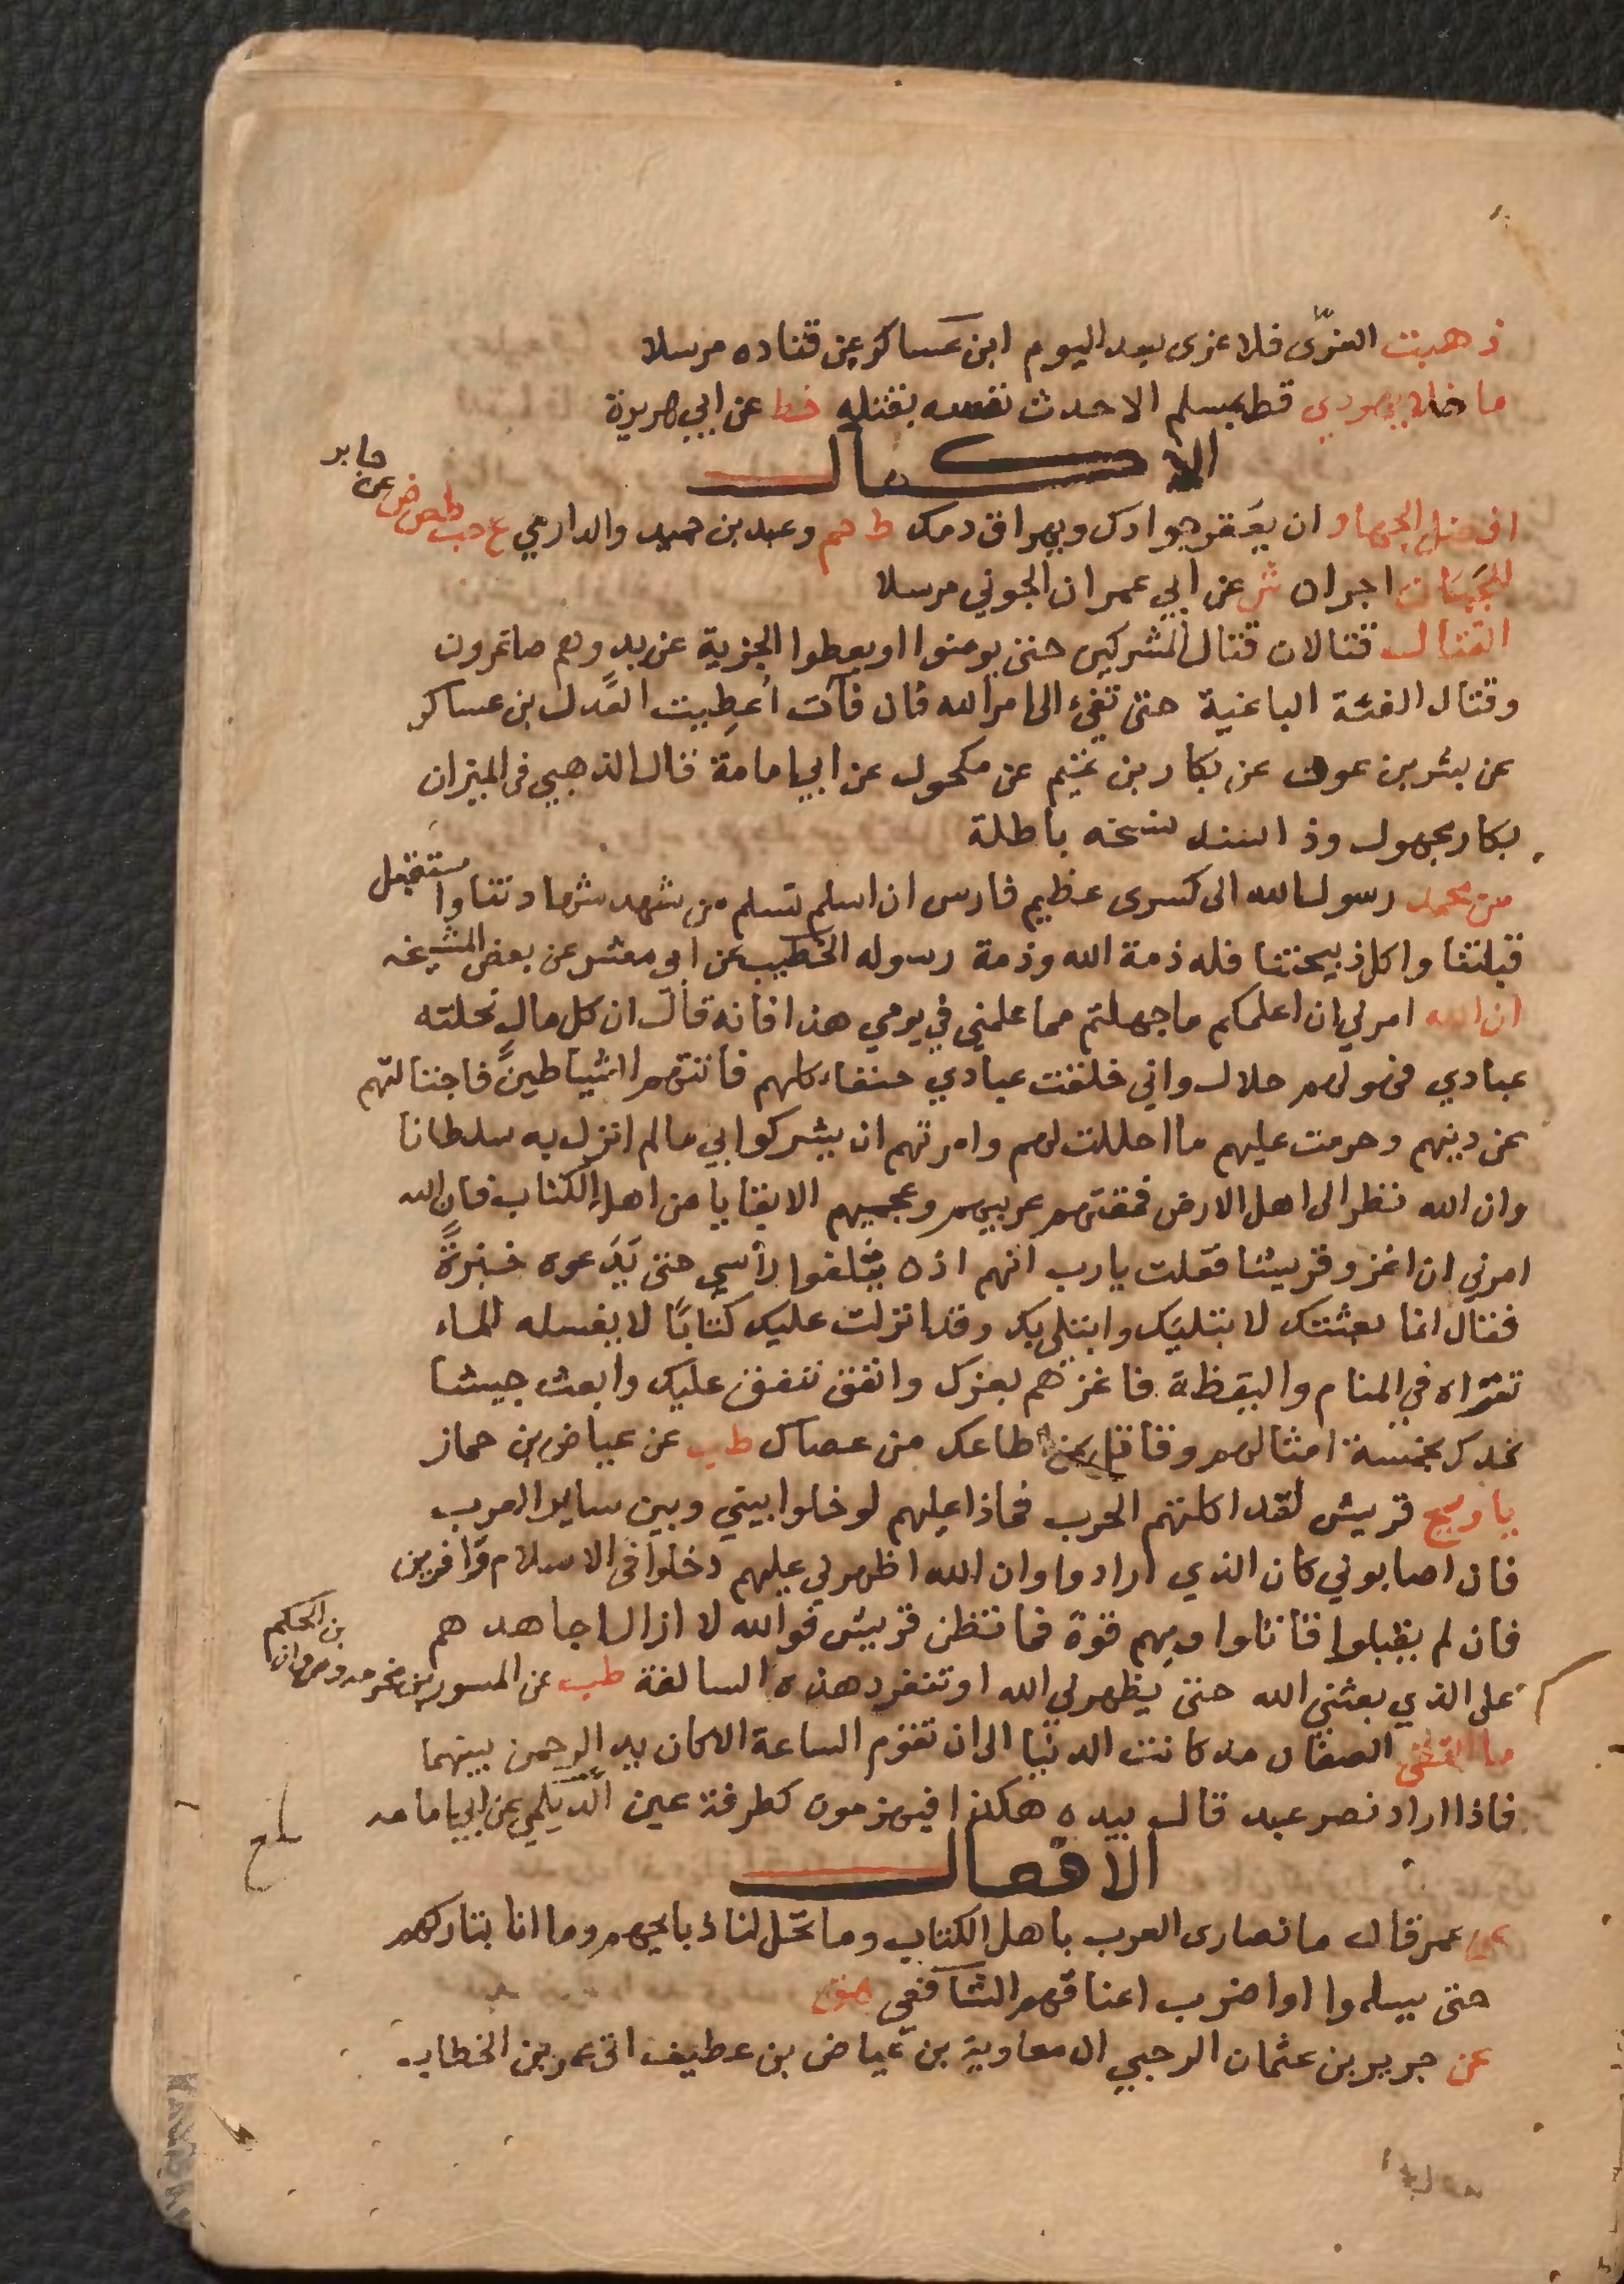 ذهبت العزّى فلا عزى بعد اليوم ابن عساكر عن قتاده مرسلا
ما خلا يهودي قط بمسلم الا حدث نفسه بقتله خط عن ابي هريرة
الاكمال
افضل الجهاد ان يعقر جوادك ويهراق دمك ط حم وعبد بن حميد والدارمي ع حب طص ض عن جابر
للجبان اجران ش عن ابي عمران الجوني مرسلا
القتال قتالان قتال المشركين حتى يومنوا او يعطوا الجزية عن يد وهم صاغرون
وقتال الفئة الباغية حتى تفيء الى امر الله فان فاءت اُعطِيت العَدل بن عساكر
عن بشر بن عون عن بكار بن تميم عن مكحول عن ابي امامة قال الذهبي في الميزان
بكار مجهول وذا السند نسخه باطلة
من محمد رسول الله الى كسرى عظيم فارس ان اسلم تسلم من شهد شهادتنا واستقبل
قبلتنا واكل ذبيحتنا فله ذمة الله وذمة رسوله الخطيب عن ابي معشر عن بعض المشيخه
ان الله امرني ان اعلمكم ما جهلتم مما علمني في يومي هذا فانه قال ان كل مال نحلته
عبادي فهو لهم حلال واني خلقت عبادي حنفاء كلهم فاتتهم الشياطين فاجتالتهم
عن دينهم وحرمت عليهم ما احللت لهم وامرتهم ان يشركوا بي ما لم انزل به سلطانا
وان الله نظر الى اهل الارض فمقتهم عربيهم وعجميهم الا بقايا من اهل الكتاب فان الله
امرني ان اغزو قريشا فقلت يارب انهم اذن يثلغوا راسي حتى يَدَعوه خبزةً
فقال انما بعثتك لابتليك وابتلي بك وقد انزلت عليك كتابًا لا يغسله الماء
تقراه في المنام واليقظة فاغزهم نغزك وانفق ننفق عليك وابعث جيشا
نمدك بخمسة امثالهم وقاتل بمن اطاعك من عصاك طب عن عياض بن حمار
يا ويح قريش لقد اكلتهم الحرب فماذا عليهم لو خلوا بيني وبين ساير العرب
فان اصابوني كان الذي ارادوا وان الله اظهرني عليهم دخلوا في الاسلام وافرين
فان لم يقبلوا قاتلوا وبهم قوة فما تظن قريش فوالله لا ازال اجاهدهم
على الذي بعثني الله حتى يظهرني الله او تنفرد هذه السالفة طب عن المسور بن مخرمه ومروان بن الحكم
ما التقى الصفان مذ كانت الدنيا الى ان تقوم الساعة الا كان يد الرحمن بينهما
فاذا اراد نصر عبد قال بيده هكذا فيهزمون كطرفة عين الديلمي عن ابي امامه
بلغ
الافعال
عن عمر قال ما نصارى العرب باهل الكتاب وما تحل لنا ذبايحهم وما انا بتاركهم
حتى يسلموا او اضرب اعناقهم الشافعي هق
عن جرير بن عثمان الرحبي ان معاوية بن عياض بن غطيف اتى عمر بن الخطاب